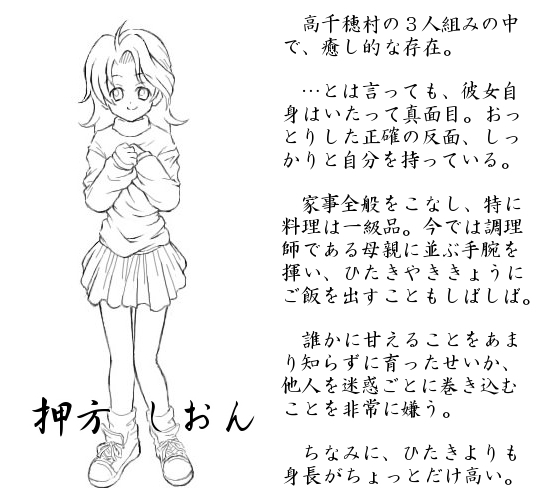 高千穂村の3人組みの中
で、癒し的な存在。
…とは言っても、彼女自
身はいたって真面目。おっ
とりした正確の反面、しっ
かりと自分を持っている。
家事全般をこなし、特に
料理は一級品。今では調理
師である母親に並ぶ手腕を
揮い、ひたきやききょうに
ご飯を出すこともしばしば。
誰かに甘えることをあま
り知らずに育ったせいか、
他人を迷惑ごとに巻き込む
ことを非常に嫌う。
ちなみに、ひたきよりも
身長がちょっとだけ高い。
押方 しおん